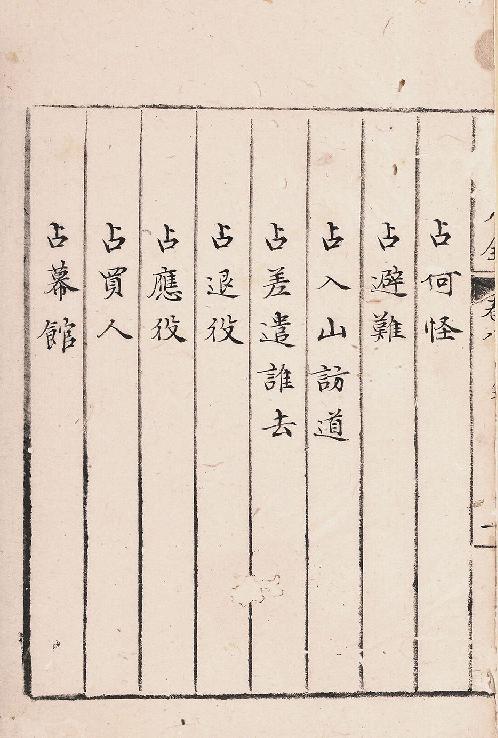 占何怪
占避難
占入山訪道
占差遣誰去
占退役
占應役
占買人
占幕館